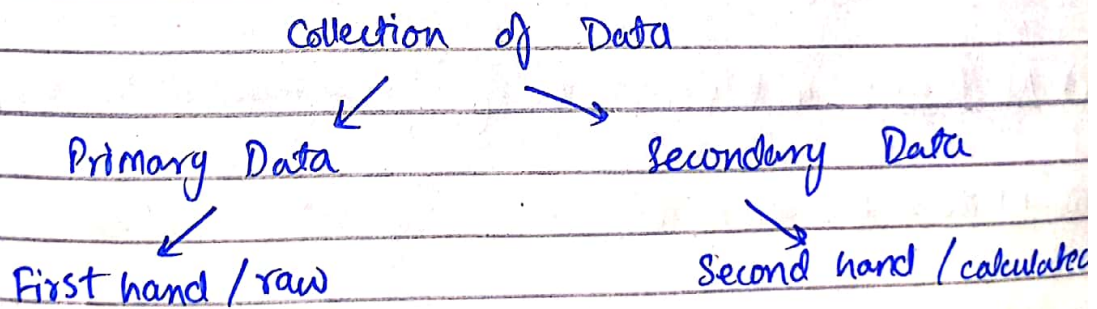 Collection of Data
Primary Data Secondary Data
First hand / raw Second hand / calculated